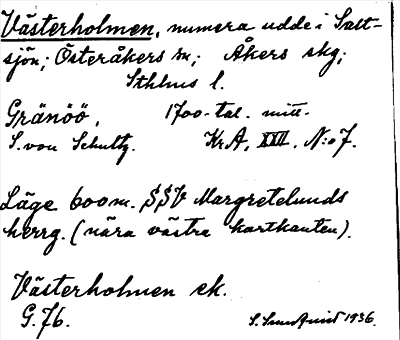 Västerholmen, numera udde i Salt-
sjön; Österåkers sn; Åkers skg;
Sthlms l.
Gränöö, 1700-tal. mitt.
S. von Schultz. Kr.A, XXII. N:o 7.
Läge 600 m. SSV Margretelunds
herrg. (nära västra kartkanten).
Västerholmen ek.
G. 76. S. 1936.